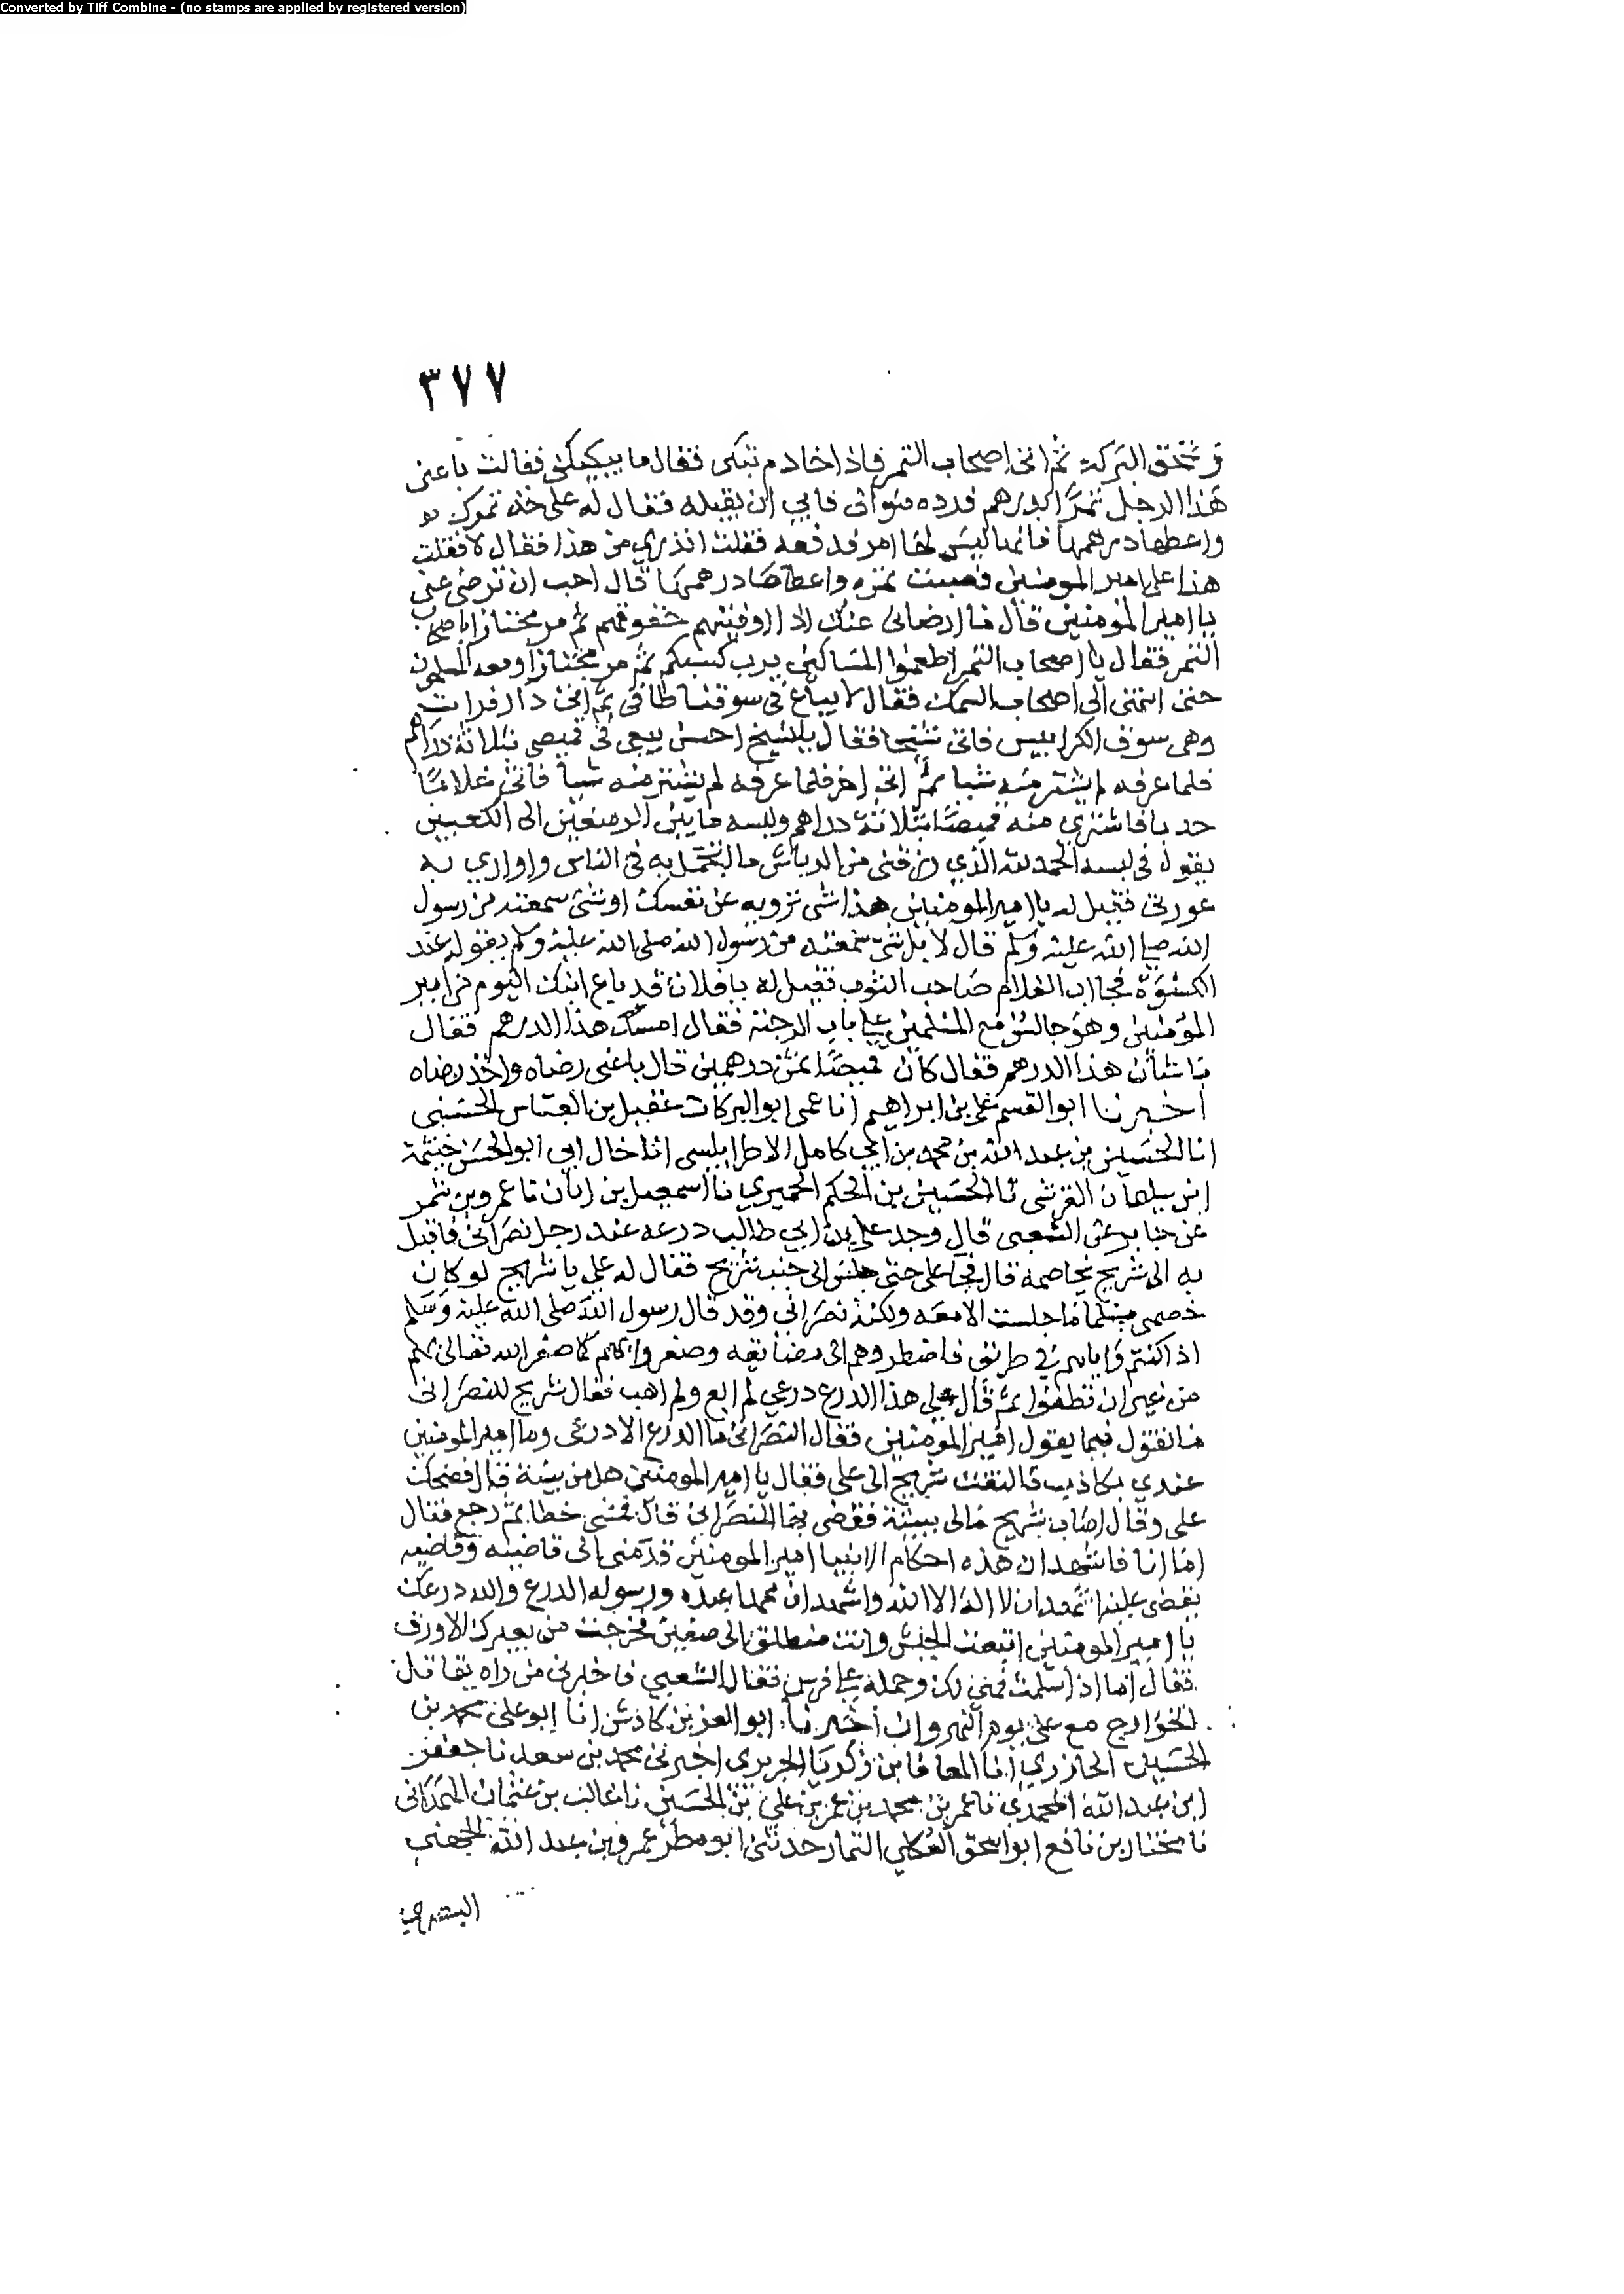 Converted by Tiff Combine - (no stamps are applied by registered version)
٣٧٧
وتمحق البركة ثم اتى اصحاب التمر فاذا خادم تبكى فقال ما يبكيك فقالت باعنى
هذا الرجل تمرا بدرهم فرده موالى فابى ان يقبله فقال له على خذ تمرك
واعطها درهمها فانها ليس لها امر فدفعه فقلت اتدرى من هذا فقال لا فقلت
هذا على امير المومنين فصبت تمره واعطاها درهمها قال احب ان ترضى عنى
يا امير المومنين قال ما ارضانى عنك اذا اوفيتهم حقوقهم ثم مر مجتازا باصحاب
التمر فقال يا اصحاب التمر اطعموا المساكين يرب كسبكم ثم مر مجتازا ومعه المسلمون
حتى انتهى الى اصحاب السمك فقال لا يباع فى سوقنا طافى ثم اتى دار فرات
وهى سوق الكرابيس فاتى شيخا فقال يا شيخ احسن بيعى فى قميص بثلاثة دراهم
فلما عرفه لم يشتر منه شيا ثم اتى اخر فلما عرفه لم يشتر منه شيا فاتى غلاما
حدثا فاشترى منه قميصا بثلاثة دراهم ولبسه ما بين الرصغين الى الكعبين
يقول فى لبسه الحمد لله الذي رزقنى من الرياش ما اتجمل به فى الناس واوارى به
عورتى فقيل له يا امير المومنين هذا شى ترويه عن نفسك او شى سمعته من رسول
الله صلى الله عليه وسلم قال لا بل شى سمعته من رسول الله صلى الله عليه وسلم يقوله عند
الكسوة فجا اب الغلام صاحب الثوب فقيل له يا فلان قد باع ابنك اليوم من امير
المؤمنين وهو جالس مع المسلمين على باب الرحبة فقال امسك هذا الدرهم فقال
ما شان هذا الدرهم فقال كان قميصا ثمن درهمين قال باعنى رضاه واخذ رضاه
اخبرنا ابو القسم على بن ابراهيم انا عمى ابو البركات عقيل بن العباس الحسنى
انا الحسين بن عبد الله بن محمد بن ابى كامل الاطرابلسى انا خال ابى ابو الحسن خيثمة
ابن سليمان القرشى نا الحسين بن الحكم الحميري نا اسمعيل بن ابان نا عمرو بن شمر
عن جابر عن الشعبى قال وجد على بن ابي طالب درعه عند رجل نصرانى فاقبل
به الى شريح يخاصمه قال فجا على حتى جلس الى جنب شريح فقال له على يا شريح لو كان
خصمى مسلما ما جلست الا معه ولكنه نصرانى وقد قال رسول الله صلى الله عليه وسلم
اذا كنتم واياهم في طريق فاضطروهم الى مضايقه وصغروا بهم كما صغر الله تعالى بهم
من غير ان تطغوا ثم قال على هذا الدرع درعي لم ابع ولم اهب فقال شريح للنصرانى
ما تقول فيما يقول امير المومنين فقال النصرانى ما الدرع الا درعى وما امير المومنين
عندي بكاذب فالتفت شريح الى على فقال يا امير المومنين هل من بينة قال فضحك
على وقال اصاب شريح مالى بينة فقضى بها للنصرانى قال فمشى خطا ثم رجع فقال
اما انا فاشهد ان هذه احكام الانبيا امير المومنين قدمنى الى قاضيه وقاضيه
يقضى عليه اشهد ان لا اله الا الله واشهد ان محمدا عبده ورسوله الدرع والله درعك
يا امير المومنين اتبعت الجيش وانت منطلق الى صفين فخرجت من بعيرك الاورق
فقال اما اذ اسلمت فهى لك وحمله على فرس فقال الشعبي فاخبرنى من راه يقاتل
الخوارج مع على يوم النهروان اخبرنا ابو العز بن كادش انا ابو على محمد بن
الحسين الجازري انا المعافا بن زكريا الجريرى اخبرنى محمد بن سعد نا جعفر
ابن عبد الله المحمدى نا عمر بن محمد بن عمر بن على بن الحسين نا غالب بن عثمان الهمدانى
نا مختار بن نافع ابو اسحق العكلى التمار حدثنى ابو مطر عمرو بن عبد الله الجهنى
البصرى